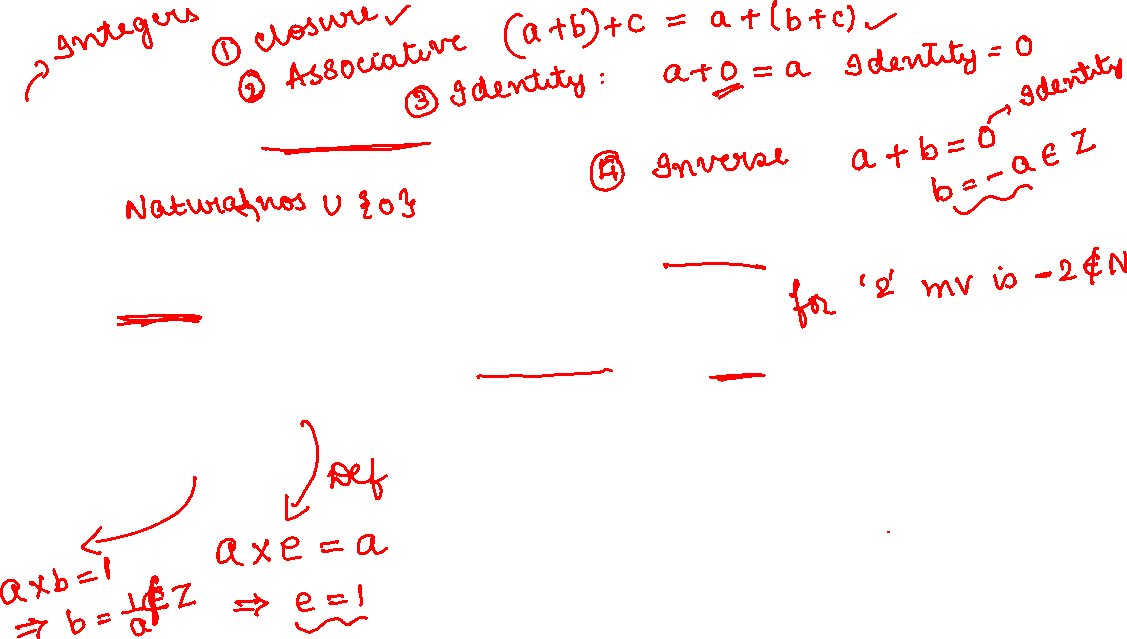 Integers
① closure ✓
② Associative (a+b)+c = a+(b+c) ✓
③ Identity: a+0 = a Identity = 0
④ Inverse a+b=0 → Identity
b=-a ∈ Z
Natural nos ∪ {0}
for '2' inv is -2 ∉ N
Def
a×e = a
⇒ e=1
a×b=1
⇒ b = 1/a ∉ Z